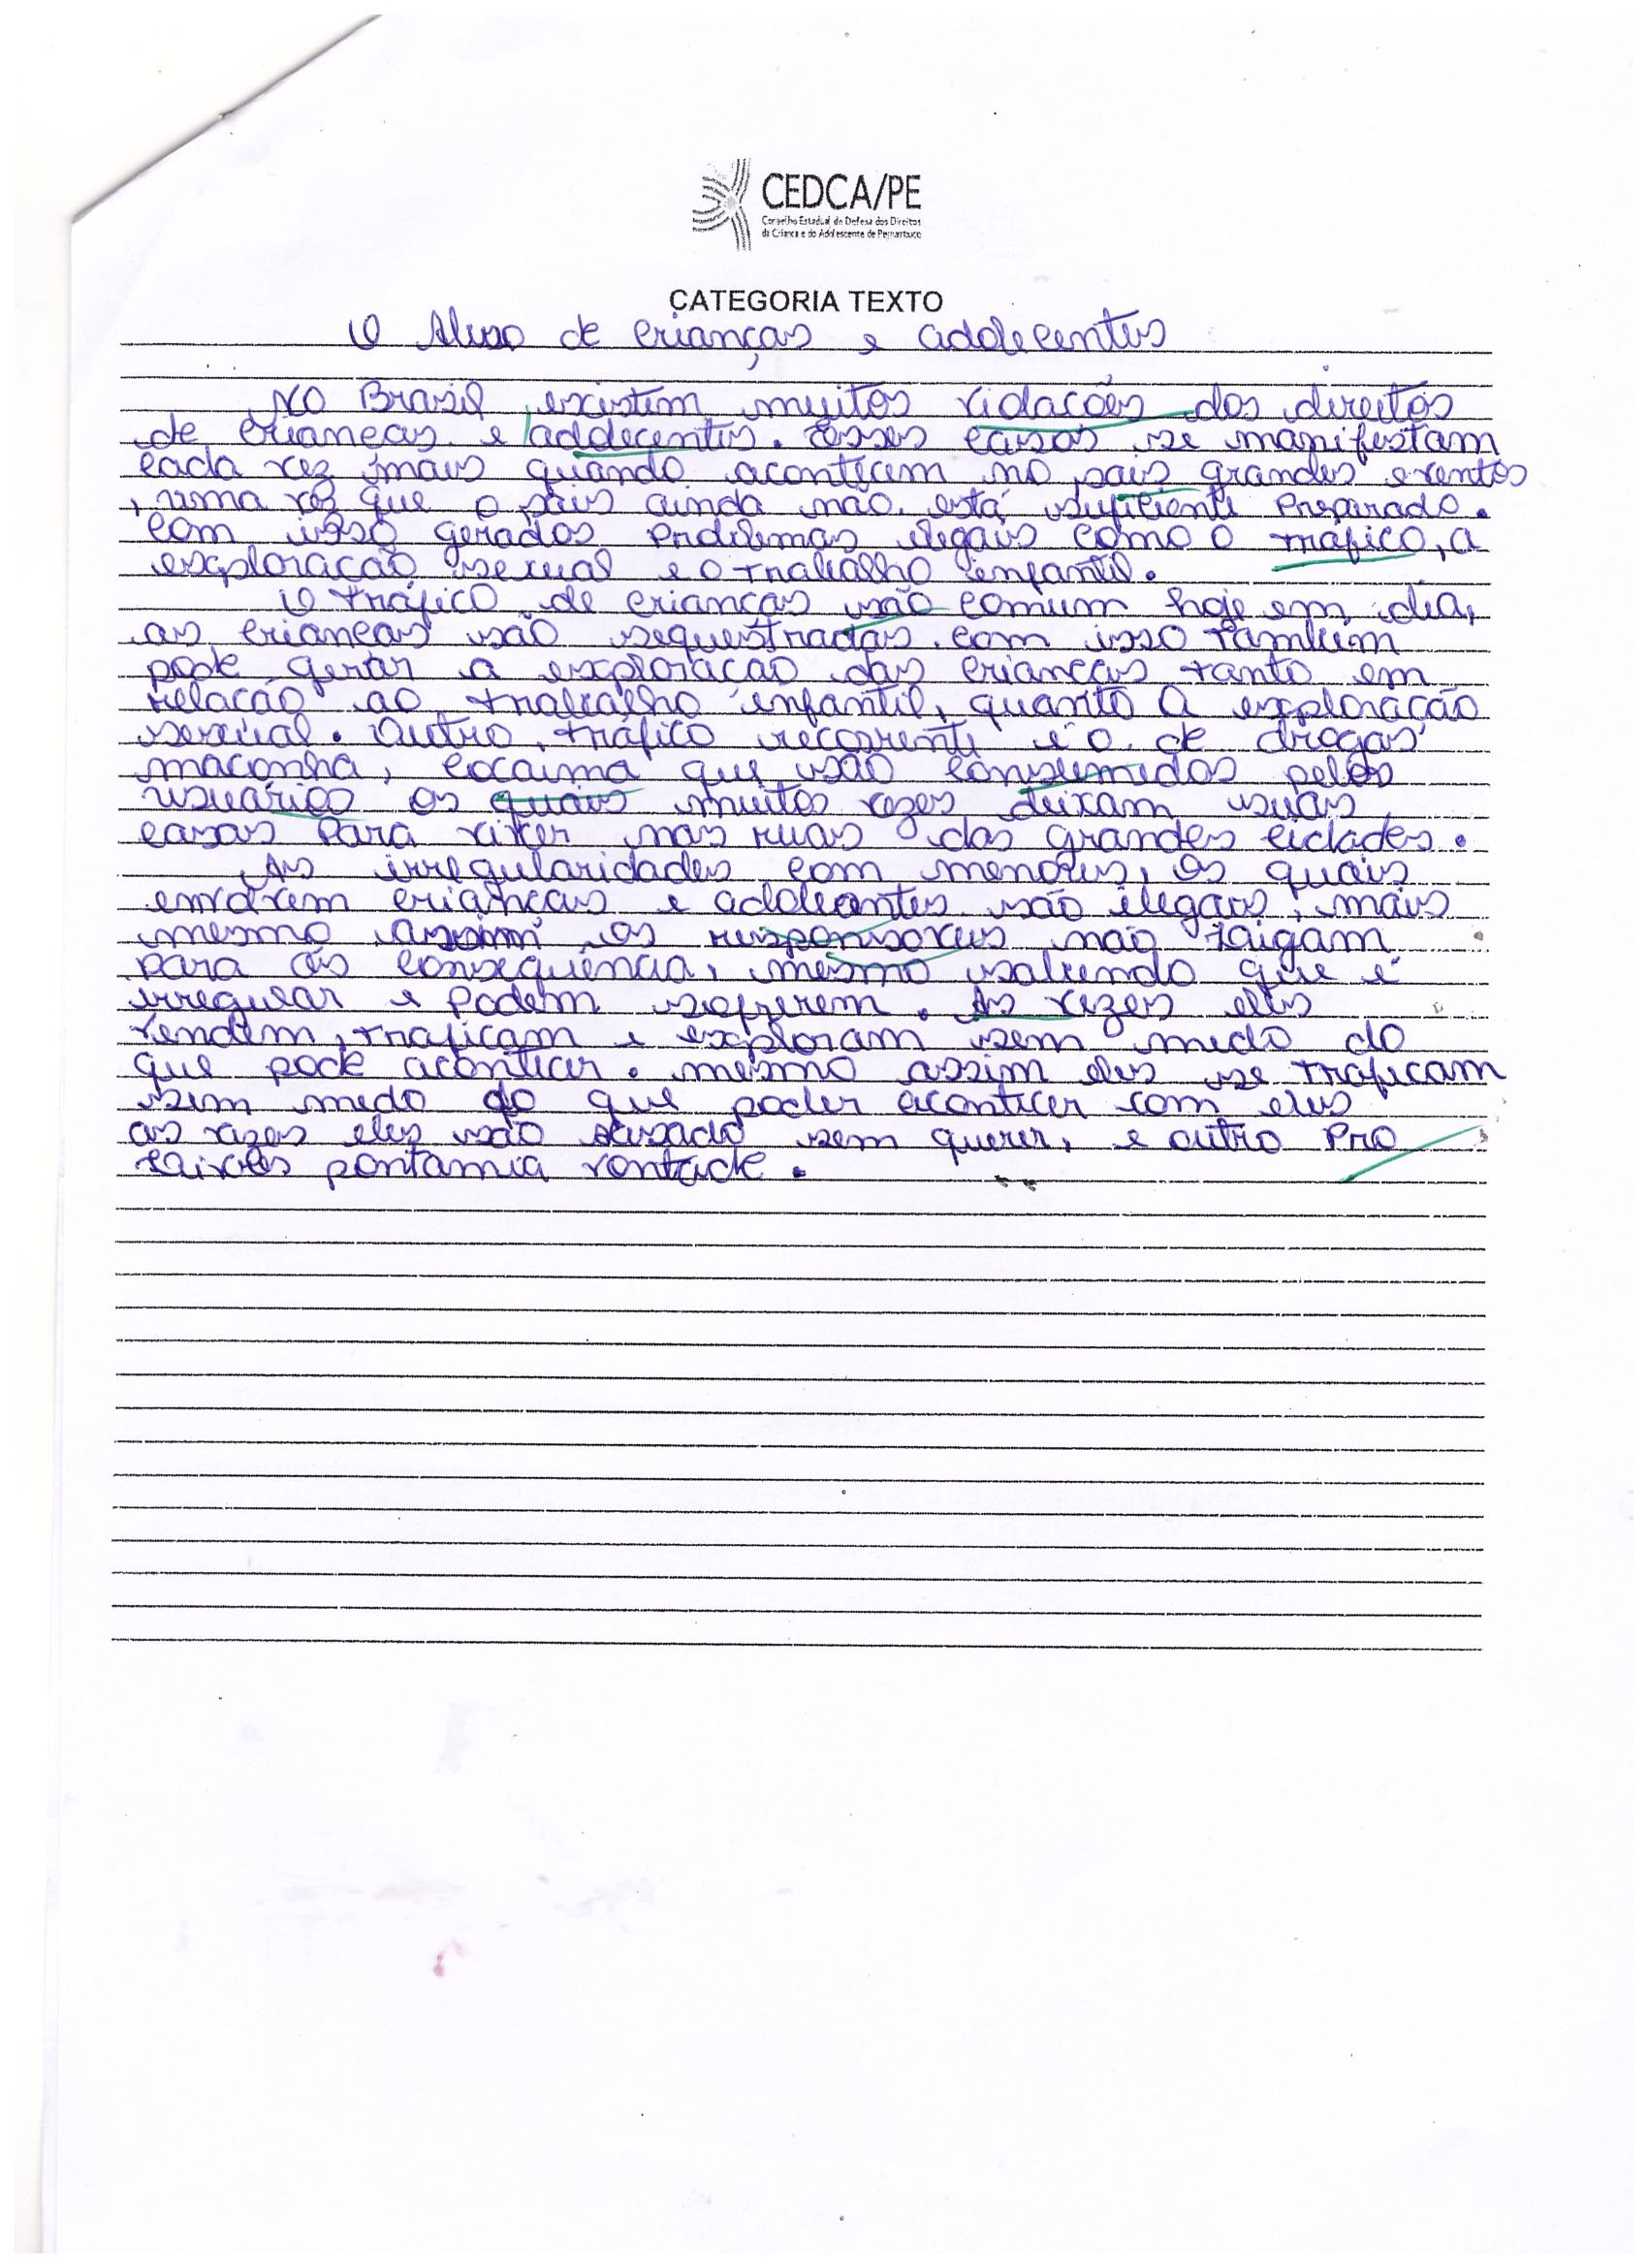 CEDCA/PE
Conselho Estadual de Defesa dos Direitos
da Criança e do Adolescente de Pernambuco
CATEGORIA TEXTO
O Abuso de crianças e adolecentes
No Brasil existem muitos violações dos direitos
de crianças e adolecentes. Esses casos se manifestam
cada vez mais quando acontecem no pais grandes eventos
, uma vez que o pais ainda não está suficiente preparado.
com isso gerados problemas ilegais como o trafico, a
exploração sexual e o trabalho infantil.
O tráfico de crianças são comum hoje em dia,
as crianças são sequestradas. com isso também
pode gerar a exploração das crianças tanto em
relação ao trabalho infantil, quanto a exploração
sexual. Outro tráfico recorrente é o de drogas
maconha, cocaima que são consumidos pelos
usuários os quais muitos vezes deixam suas
casas para viver nas ruas das grandes cidades.
As irregularidades com menores, os quais
envolvem crianças e adolecentes são ilegaos, mais
mesmo assim os não ligam
para as consequência, mesmo sabendo que é
irregular e podem sofrerem. As vezes eles
vendem, traficam e exploram sem medo do
que pode acontecer. mesmo assim eles se traficam
sem medo do que poder acontecer com eles
as vezes eles são sem querer, e outro pro
vontade.